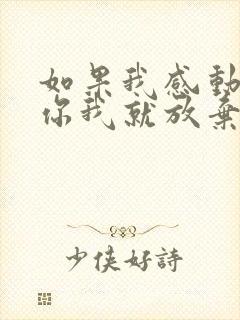 如果我感動
你我就放棄
少侠好詩